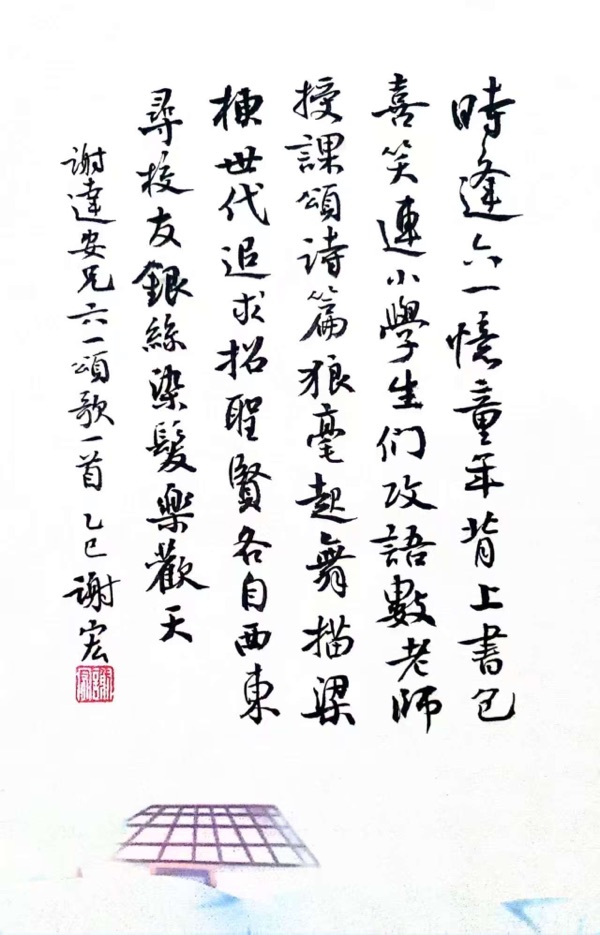 時逢六一憶童年背上書包
喜笑連小學生们攻語數老師
授課頌詩篇狼毫起舞描梁
棟世代追求招聖賢各自西東
尋校友銀絲染髮樂歡天
謝達安兄六一頌歌一首 乙巳 謝宏